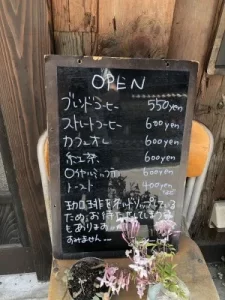 OPEN
ブレンドコーヒー 550yen
ストレートコーヒー 600yen
カフェオレ 600yen
紅茶 600yen
600yen
トースト 400yen
珈琲を ドリップしている
ため、お待たせしてしまう
も あります
すみません…